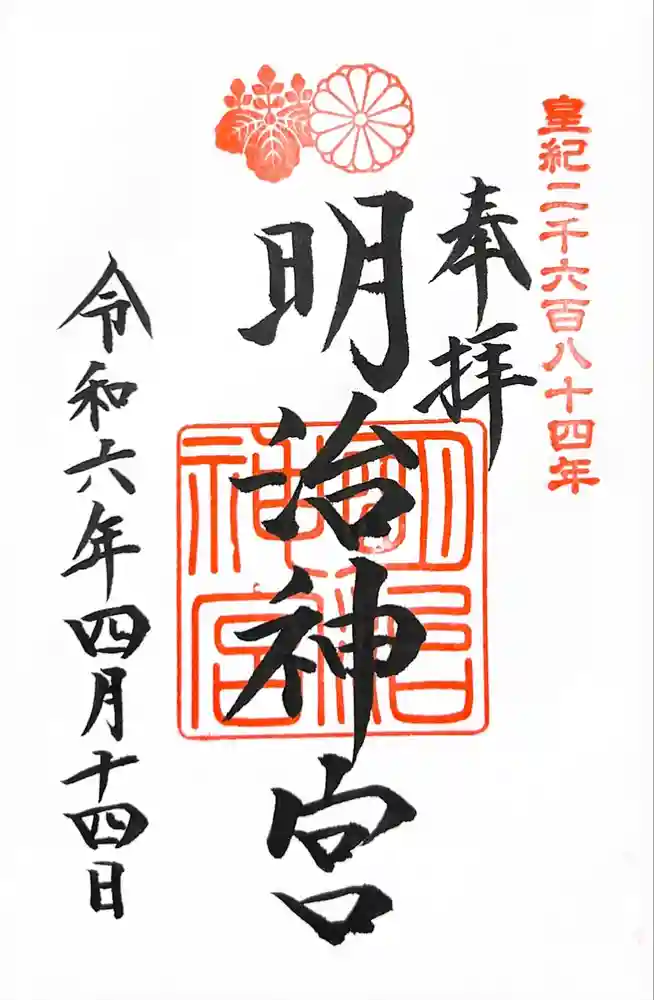 皇紀二千六百八十四年
奉拝
明治神宮
明治神宮
令和六年四月十四日